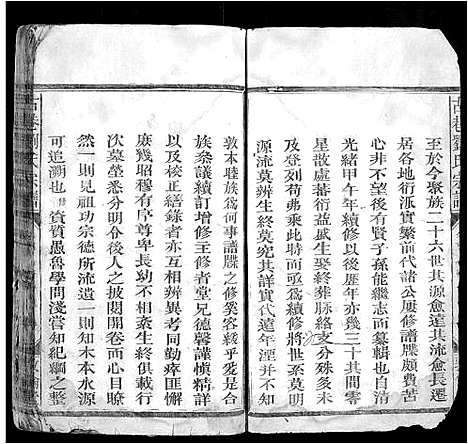 至於今聚族二十六世其源愈遠其流愈長遷
居各地衍派實繁前代諸公屢修譜牒頗費苦
心非不望後有賢子孫能繼志而纂輯也自清
光緒甲午年續修以後歷年亦幾三十其間零
星散處蕃衍益盛生娶終葬脈絡分支多未
及登列苟弗乘此時而亟為續修將世系不明
源流莫辨生終莫究其詳實代遠年湮并不知
敦本睦族為何事譜牒之修奚容緩乎爰是合
族叅議續訂增修主修者堂兄德馨謹慎精詳
以及校正繕錄者亦互相辨異考同勤瘁匪懈
庶幾昭穆有序尊卑長幼不相紊生終俱載行
次墓塋悉分明令後人之披閱開卷而心目瞭
然一則見祖功宗德所流遺一則知木本水源
可追溯也賓質愚魯學問淺嘗知紀綱之整
古巷劉氏宗譜